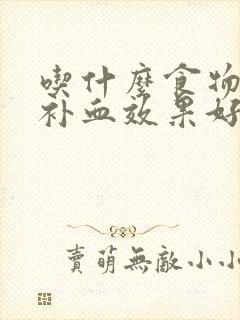 喫什麼食物
补血效果好
賣萌無敵小小